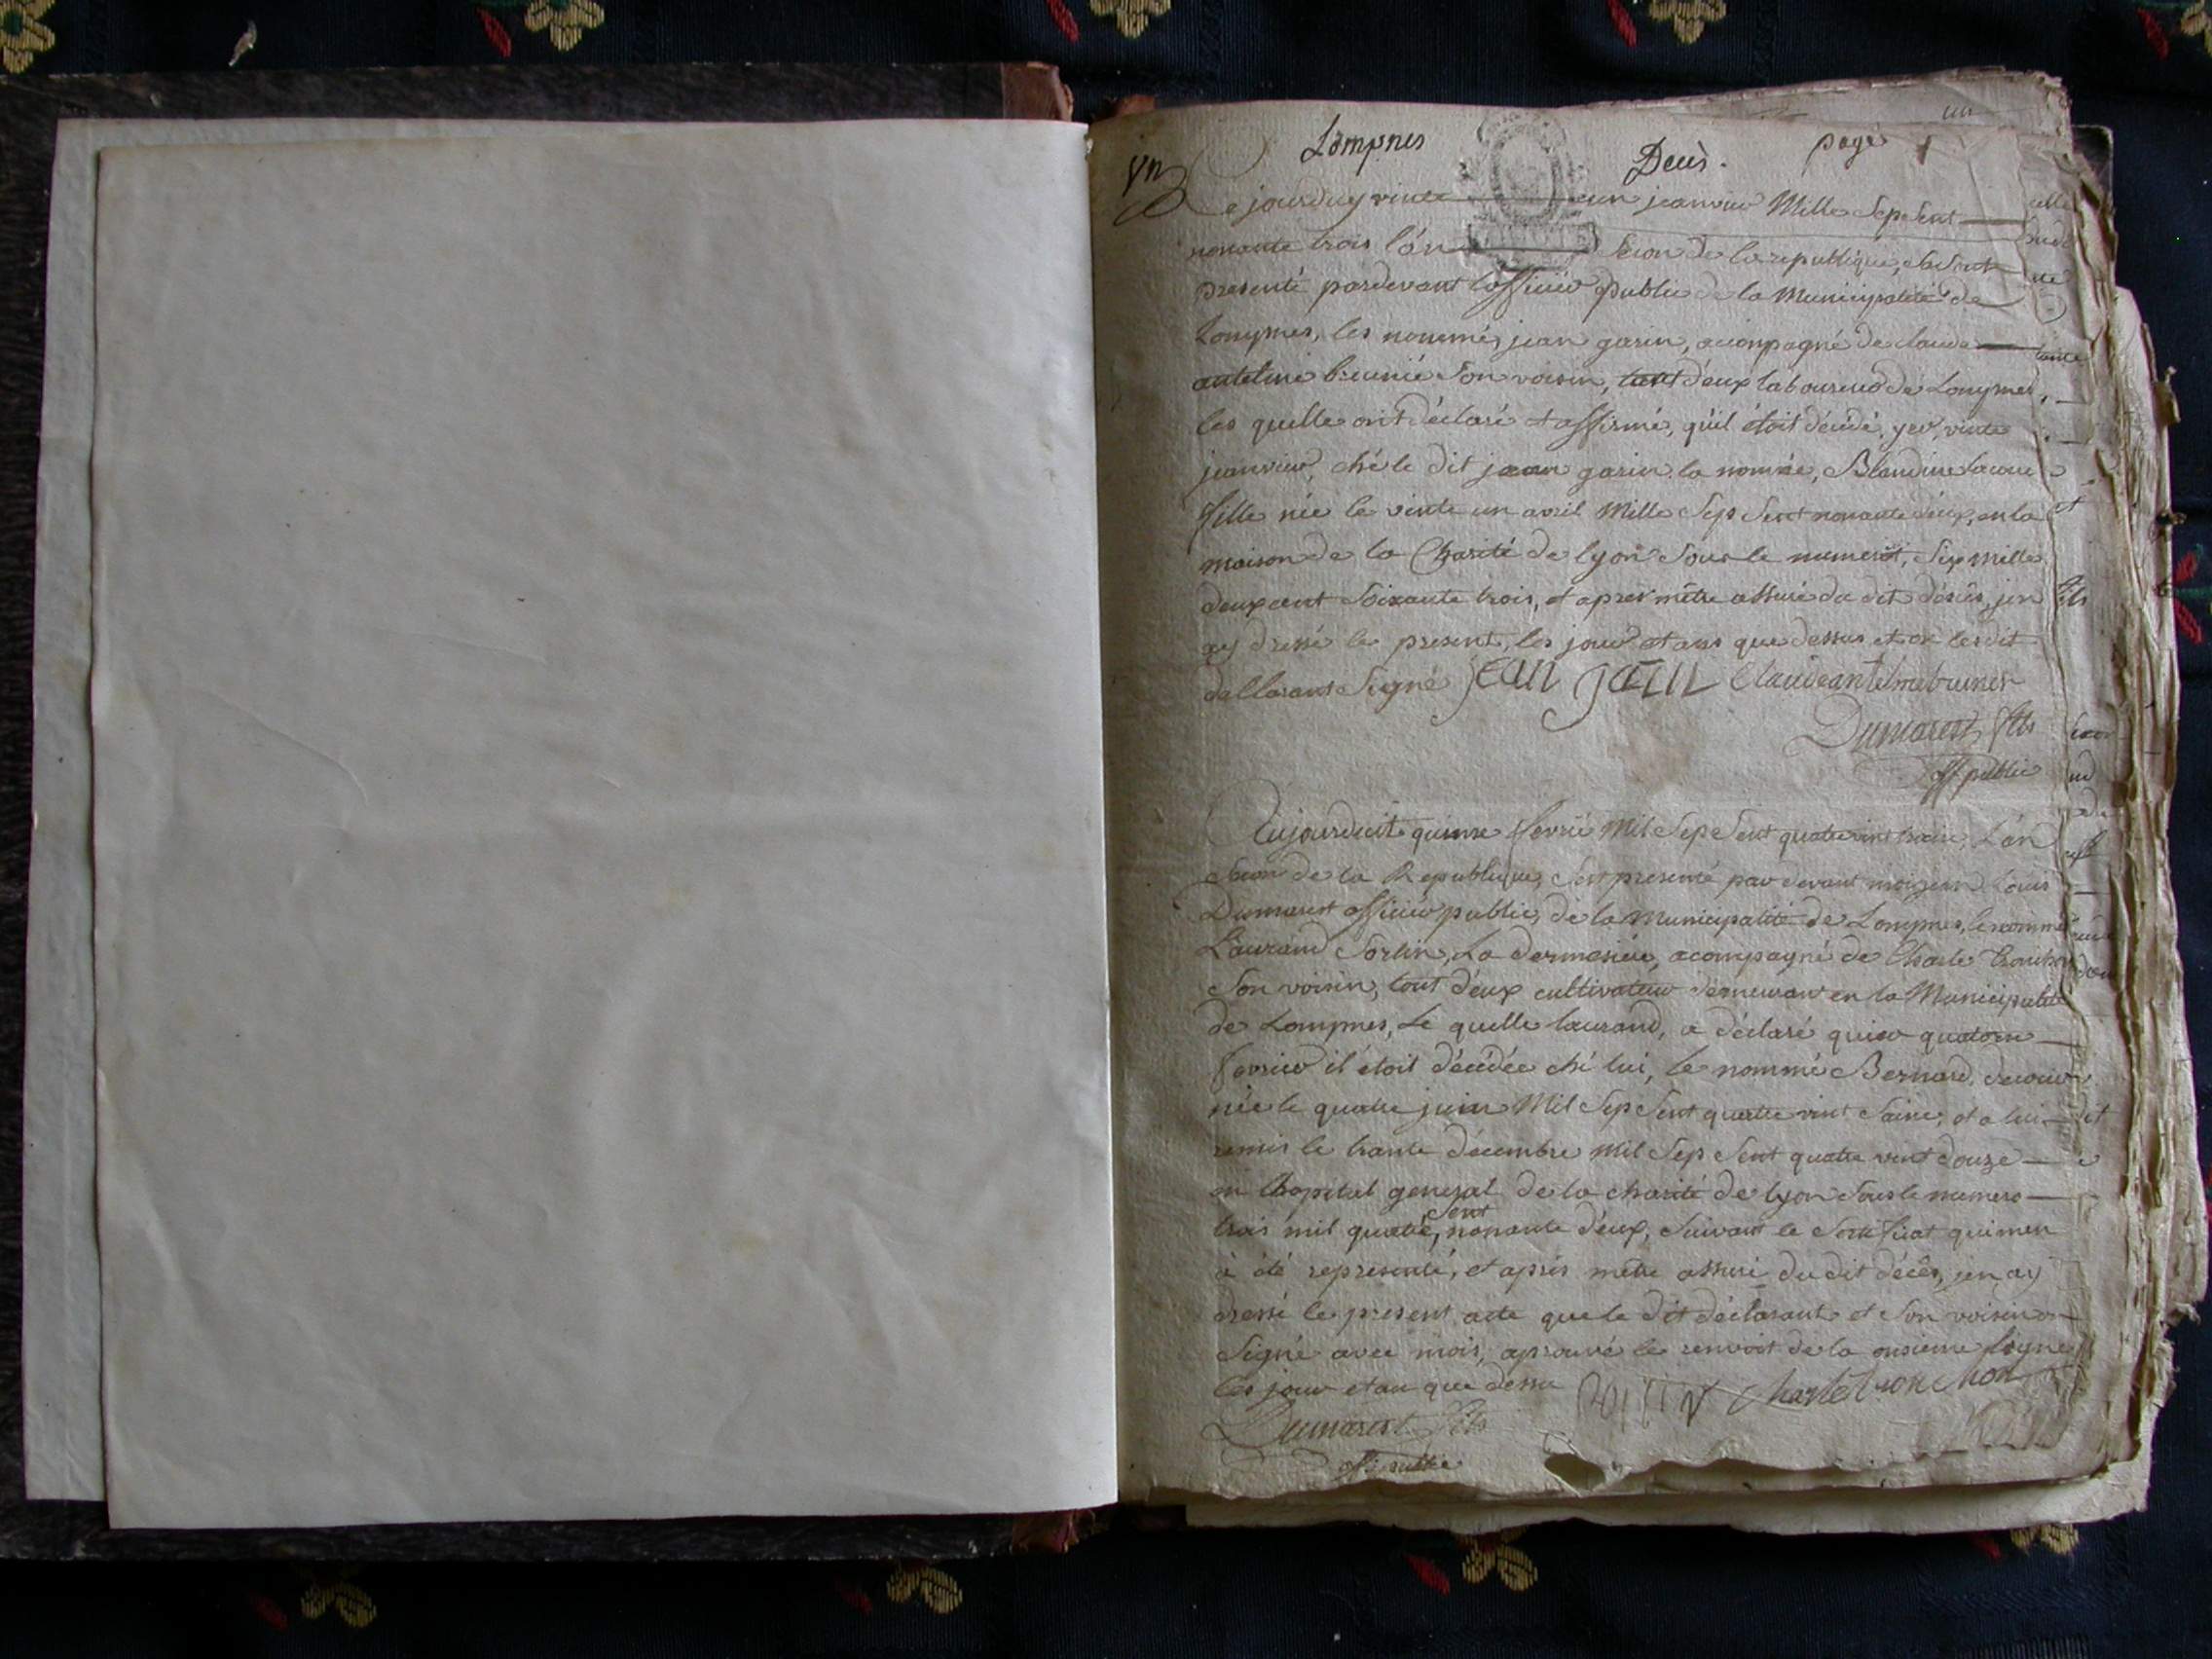 yn Lompnes Decès. page 1
Ce jourduy vinte un jeanvier Mille Sepe Sent
nonante trois l'án Secon de la republique, Se Sont
presenté pardevant l'officier public de la Municipalité de
Lompnes, les nommé, jean garin, acompagné de claude
anteline brunié Son voisin, tout déux laboureur de Lompnes,
les quelle ont déclaré et affirmé, quil étoit décédé, yer, vinte
jeanvier, ché le dit jean garin la nomée, Blandine
fille née le vinte un avril Mille Sep Sent nonante déux, en la
maison de la Charité de lyon Sous le numerot, Six mille
deux cent Soixante trois, et apres mètre assuré du dit désès, jen
ay dressé le present, les jour et ans que dessus et on les dit
dellarans Signé jean garin Claude antelme brunier
Dumarest fils
off public
Aujourduit quinse fevrié Mil Sepe Sent quatrevint traise, L'án
Secon de la Republique, Sest presenté par devant moi jean Louis
Dumarest officier public, de la Municipalité de Lompnes, le nommé
Laurand Sorlin, La dermasière, acompagné de Charle tronchon
Son voisin, tout déux cultivateur démeurant en la Municipalité
de Lompnes, Le quelle laurand, a déclaré quier quatorse
fevrier il étoit décédée ché lui, le nommé Bernard,
née le quatre juin Mil Sep Sent quatre vint Saise, et a lui
remis le trante décembre Mil Sep Sent quatre vint douze
en lhopital general de la charité de lyon Sous le numero
trois mil quatre, Sent nonante déux, Suivant le Sertificat qui men
à été representé, et aprés mètre assuré du dit décês, jen ay
dressé le present acte que le dit déclarant et Son voisin on
Signé avec mois, aprouvé le renvoit de la onsieme ligne
les jour et an que dessu Sorlin Charle tronchon
Dumarest fils
offi public